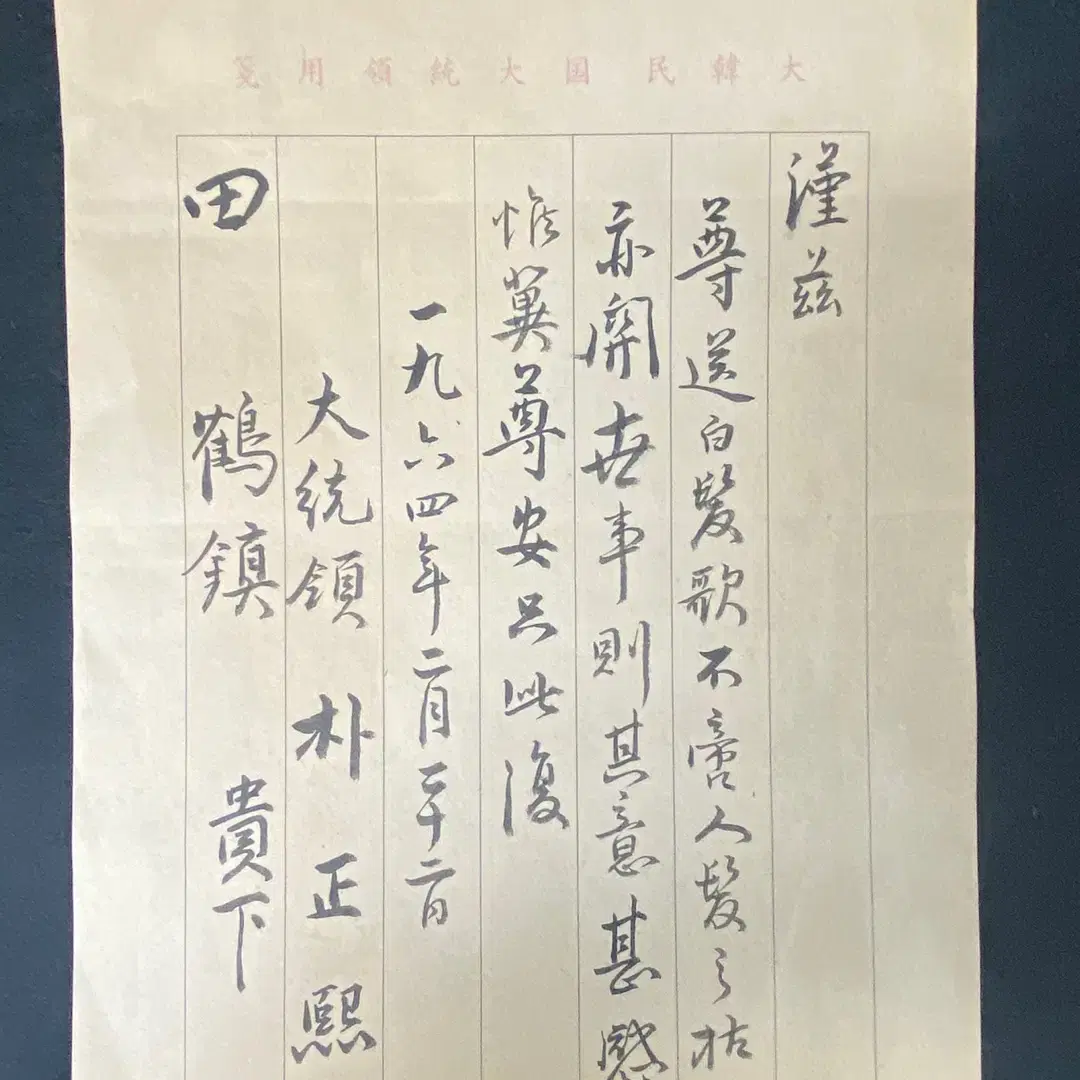 大韓民国大統領用箋
謹玆
尊送白髮歌不啻人髮之枯
亦關世事則其意甚
惟冀尊安只此復
一九六四年二月二十二日
大統領 朴正熙
田 鶴鎮 貴下